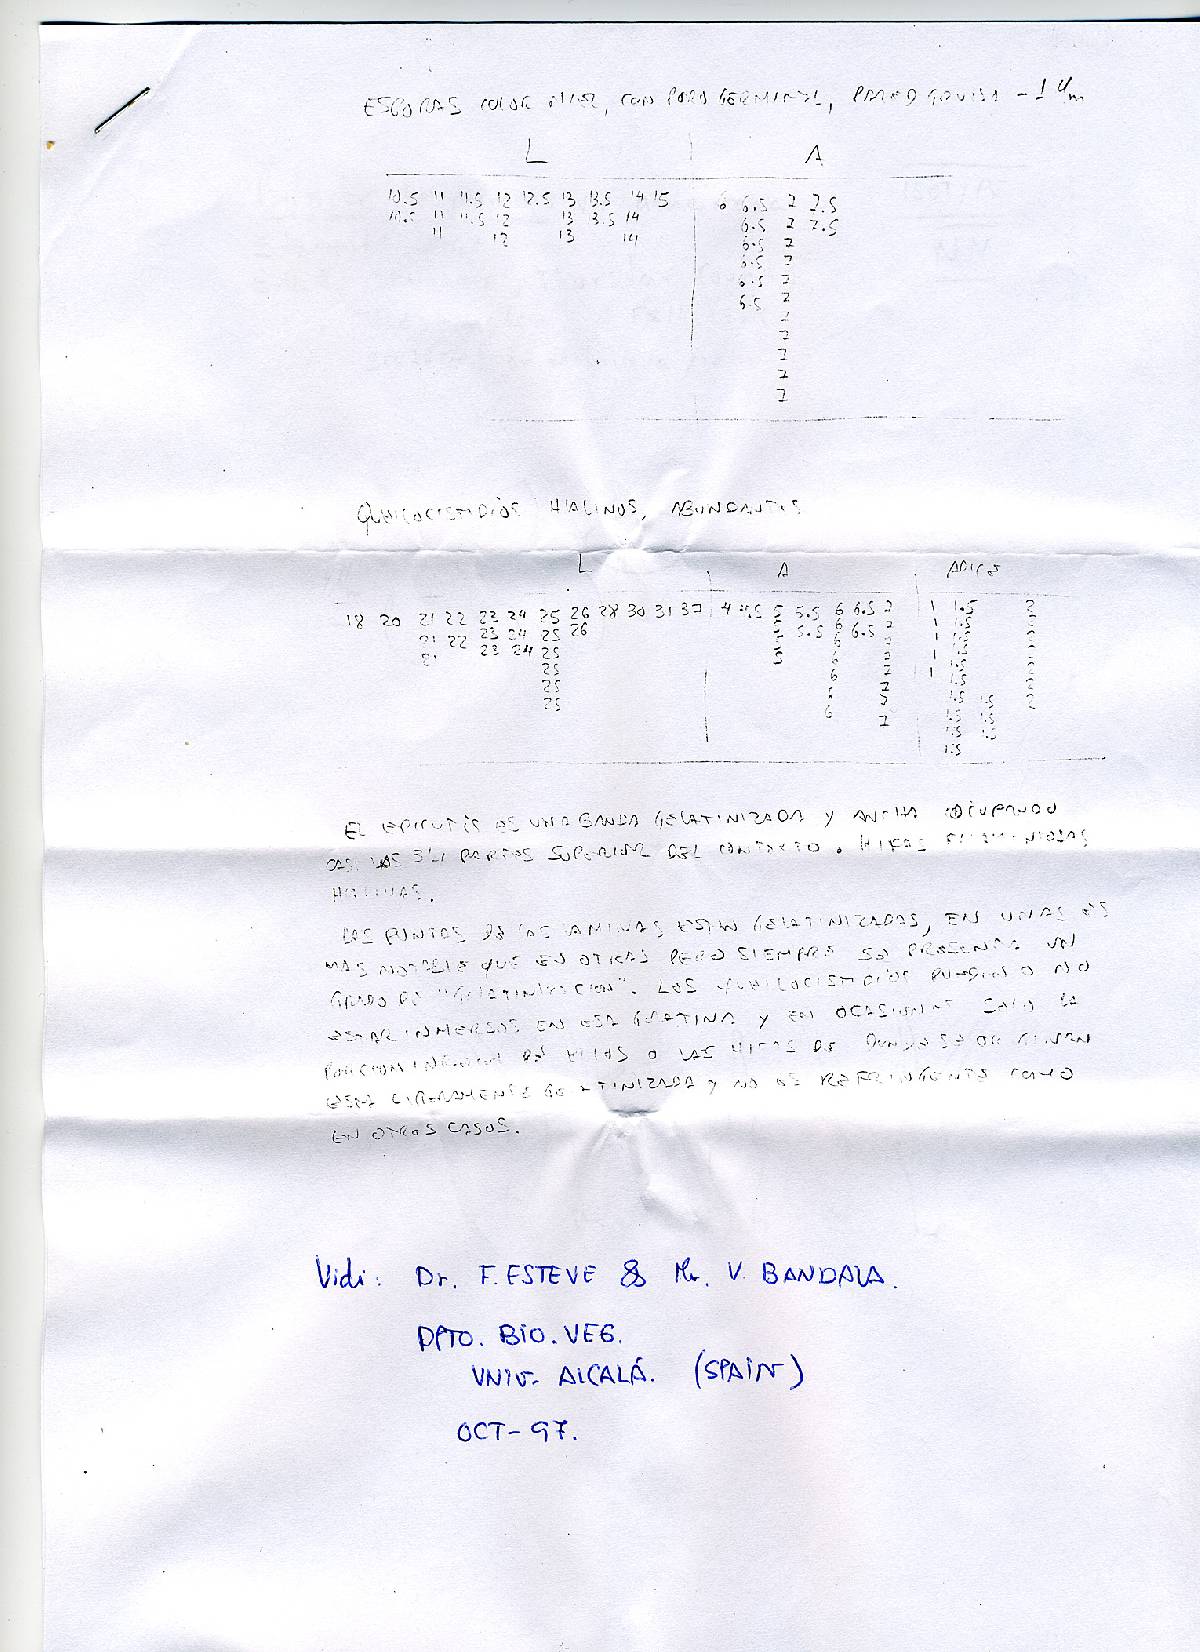 ESPORAS COLOR MIEL, CON PORO GERMINAL, PARED GRUESA -1 µm
L A
10.5 11 11.5 12 12.5 13 13.5 14 15 6 6.5 7 7.5
10.5 11 11.5 12 13 3.5 14 6.5 7 7.5
11 12 13 14 6.5 7
6.5 7
6.5 7
6.5 7
7
7
7
7
7
QUEILOCISTIDIOS HIALINOS, ABUNDANTES
L A APICE
18 20 21 22 23 24 25 26 28 30 31 37 4 4.5 5 5.5 6 6.5 7 1 1.5 2
21 22 23 24 25 26 5.5 6.5
21 23 24 25
25
25
25
6 7
1.5
EL EPICUTIS ES UNA BANDA GELATINIZADA Y ANCHA OCUPANDO
CASI LAS 3/4 PARTES SUPERIOR DEL CONTEXTO. HIFAS FILAMENTOSAS
HIALINAS.
LAS PUNTAS DE LAS LAMINAS ESTAN GELATINIZADAS, EN UNAS ES
MAS NOTABLE QUE EN OTRAS PERO SIEMPRE SE PRESENTA UN
GRADO DE "GELATINIZACION". LOS QUEILOCISTIDIOS PUEDEN O NO
ESTAR INMERSOS EN ESA GELATINA Y EN OCASIONES SOLO LA
PORCION INFERIOR DE ELLOS O LAS HIFAS DE DONDE SE ORIGINAN
ESTA LIGERAMENTE GELATINIZADA Y NO ES REFRINGENTE COMO
EN OTROS CASOS.
Vidi: Dr. F. ESTEVE & Mr. V. BANDALA.
DPTO. BIO. VEG.
UNIV. ALCALÁ. (SPAIN)
OCT-97.